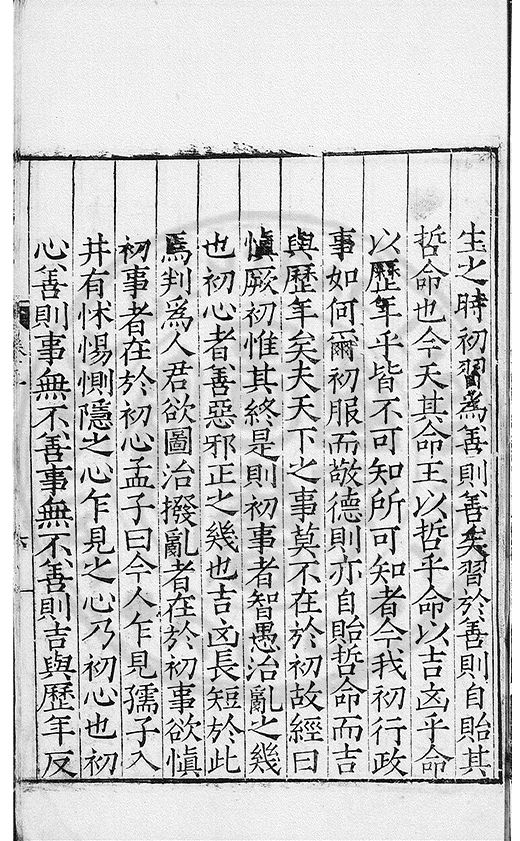 生之時初習為善則善矣習於善則自貽其
哲命也今天其命王以哲乎命以吉凶乎命
以歷年乎皆不可知所可知者今我初行政
事如何爾初服而敬德則亦自貽哲命而吉
與歷年矣夫天下之事莫不在於初故經曰
慎厥初惟其終是則初事者智愚治亂之幾
也初心者善惡邪正之幾也吉凶長短於此
焉判為人君欲圖治撥亂者在於初事欲慎
初事者在於初心孟子曰今人乍見孺子入
井有怵惕惻隱之心乍見之心乃初心也初
心善則事無不善事無不善則吉與歷年反